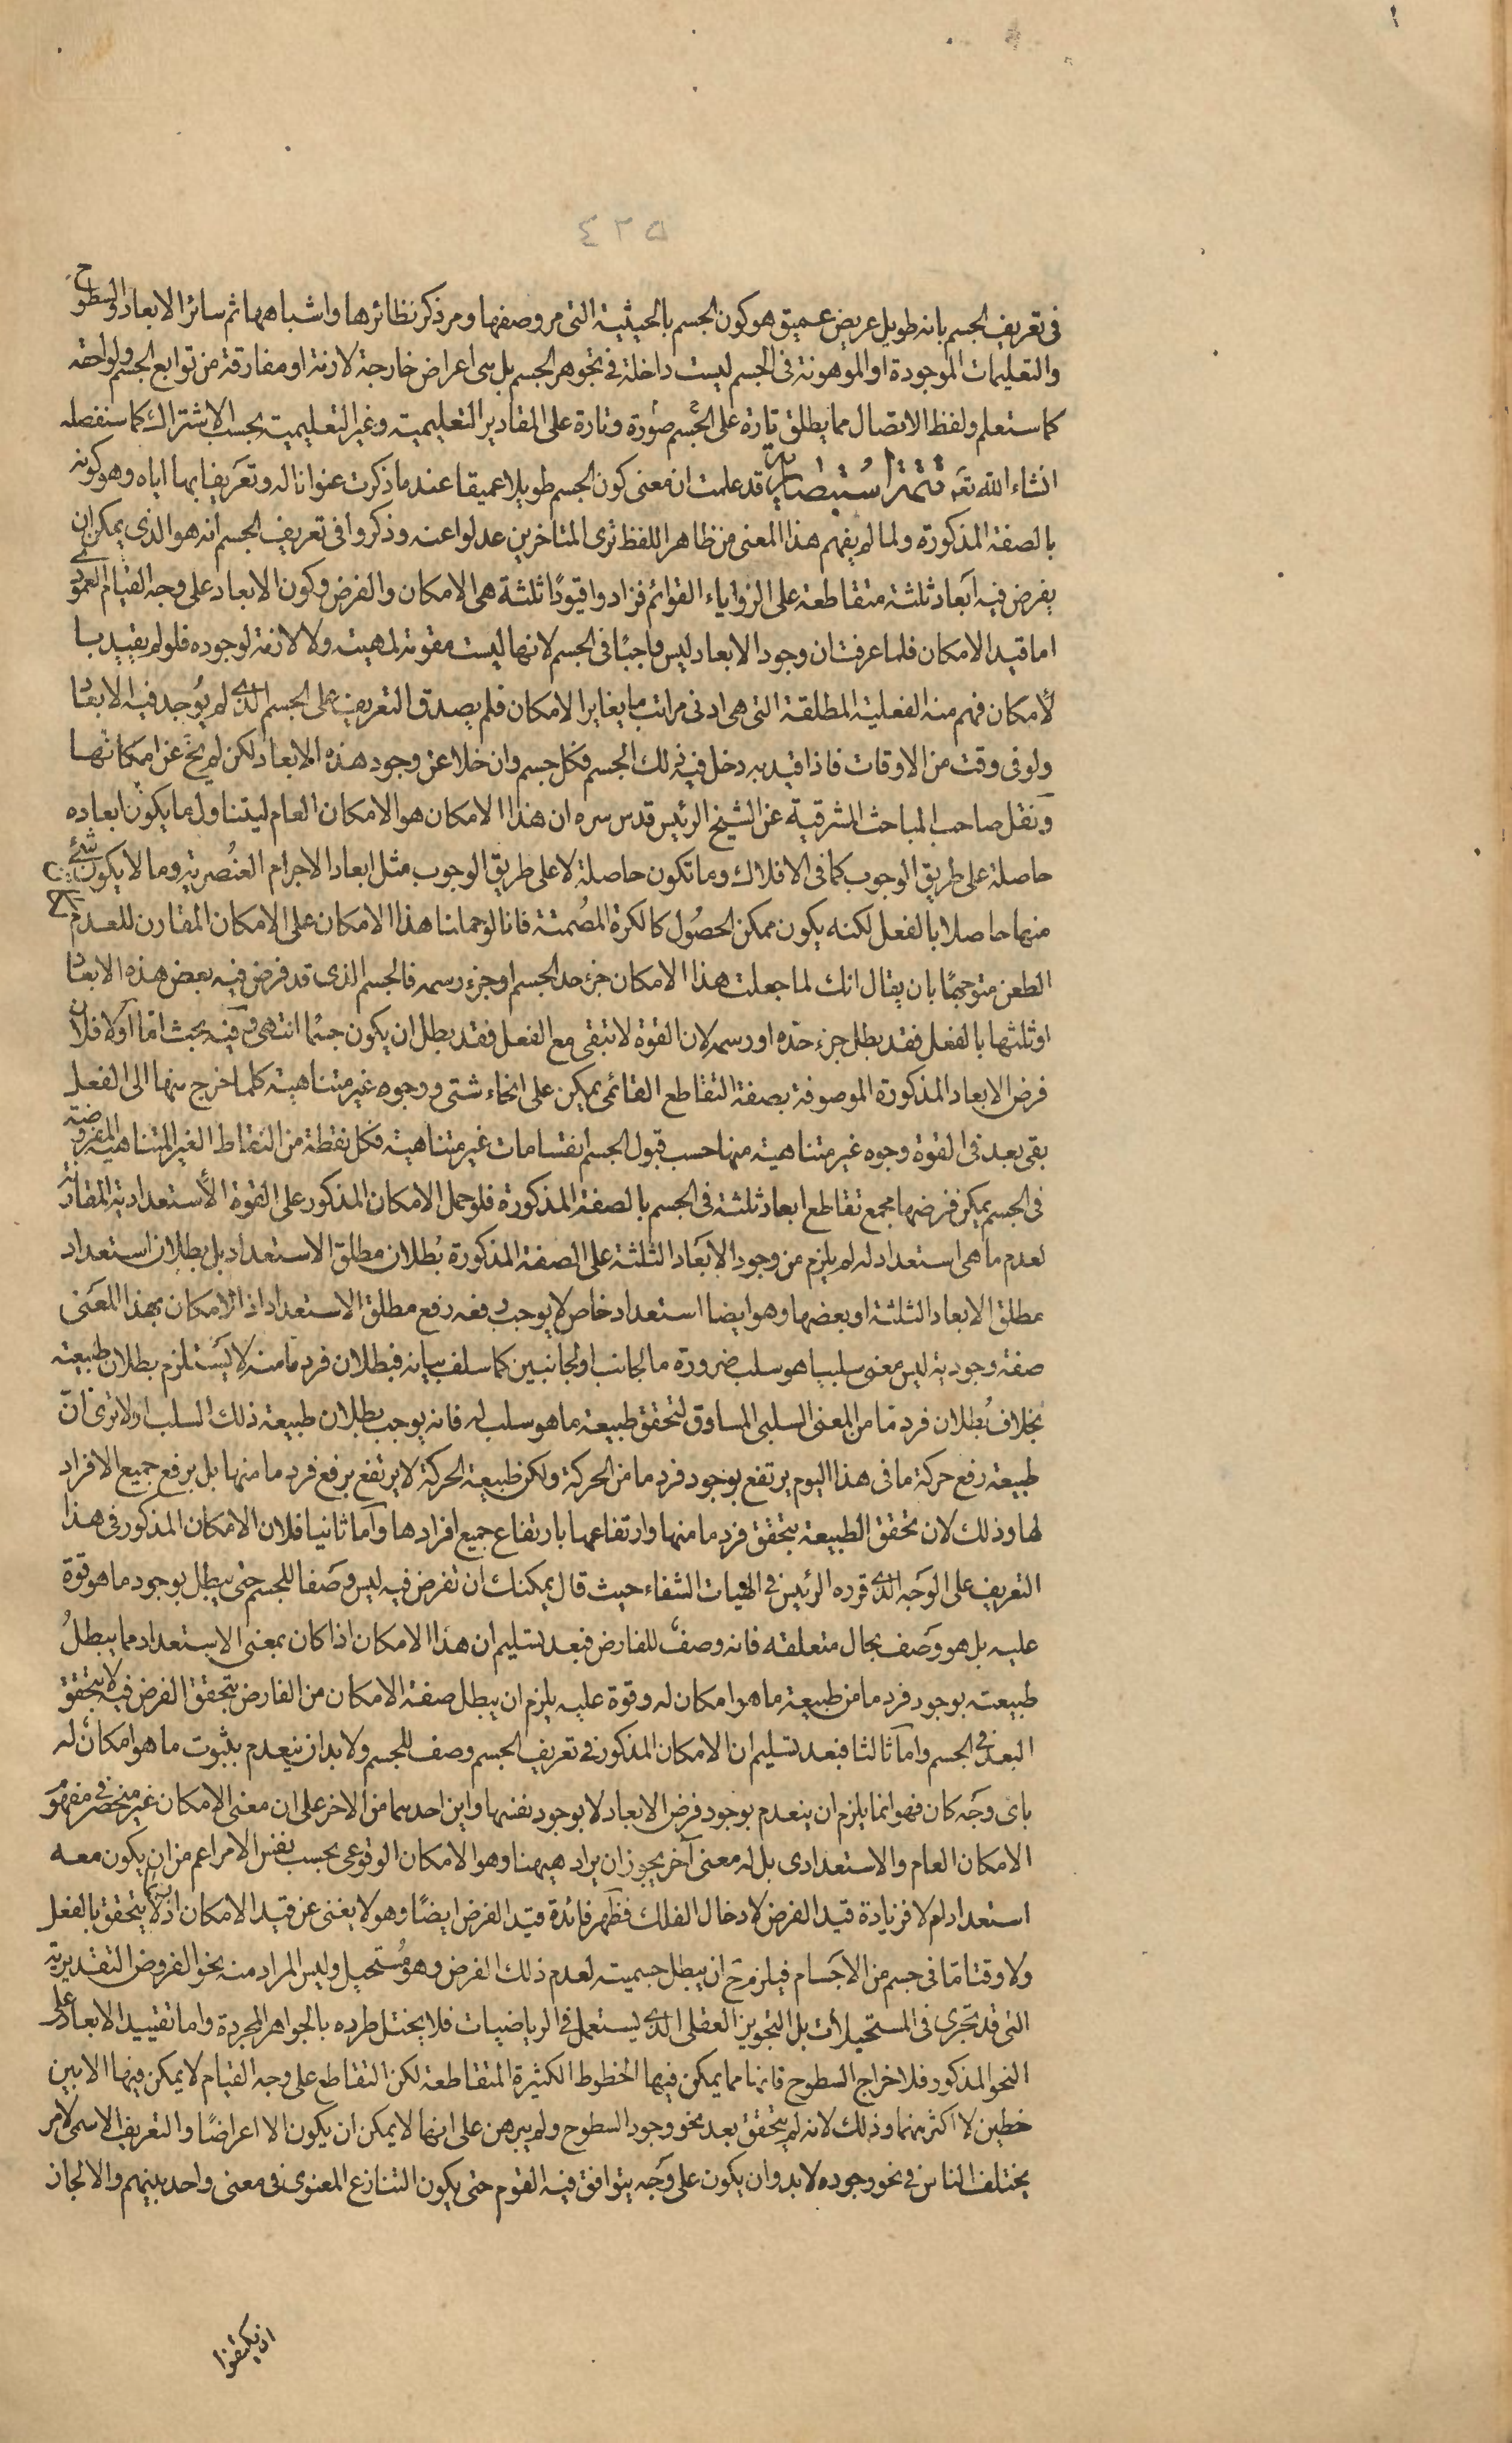 ٤٢٥
فى تعريف الجسم بانه طويل عريض عميق هو كون الجسم بالحيثية التى مر وصفها ومر ذكر نظائرها واشباهها ثم سائر الابعاد والسطوح
والتعليمات الموجودة او الموهومة فى الجسم ليست داخلة فى تجوهر الجسم بل هى اعراض خارجة لازمة او مفارقة من توابع الجسم ولواحقه
كما ستعلم ولفظ الاتصال مما يطلق تارة على الجسم صورة وتارة على المقادير التعليمية وغير التعليمية بحسب الاشتراك كما سنفصله
انشاء الله تعه تتمة استبصارية قد علمت ان معنى كون الجسم طويلا عميقا عند ما ذكرت عنوانا له وتعريفا بها اياه وهو كونه
بالصفة المذكورة ولما لم يفهم هذا المعنى من ظاهر اللفظ ترى المتاخرين عدلوا عنه وذكروا فى تعريف الجسم انه هو الذى يمكن ان
يفرض فيه ابعاد ثلثة متقاطعة على الزواياء القوائم فزادوا قيودًا ثلثة هى الامكان والفرض وكون الابعاد على وجه القيام العمودى
اما قيد الامكان فلما عرفت ان وجود الابعاد ليس واجبًا فى الجسم لانها ليست مقومة لمهيته ولا لازمة لوجوده فلو لم يقيد با
لأمكان فهم منه الفعلية المطلقة التى هى ادنى مراتب ما يغاير الامكان فلم يصدق التعريف على الجسم الذى لم يوُجد فيه الابعاد
ولو فى وقت من الاوقات فاذا قيد به دخل فيه ذلك الجسم فكل جسم وان خلا عن وجود هذه الابعاد لكن لم يخ عن امكانها
ونقل صاحب المباحث المشرقية عن الشيخ الرئيس قدس سره ان هذا الامكان هو الامكان العام ليتناول ما يكون ابعاده
حاصلة على طريق الوجوب كما فى الافلاك وما تكون حاصلة لا على طريق الوجوب مثل ابعاد الاجرام العنُصرية وما لا يكون شئ
منها حاصلا بالفعل لكنه يكون ممكن الحصُول كالكرة المصُمتة فانا لو حملنا هذا الامكان على الامكان المقارن للعدم
الطعن متوجهًا بان يقال انك لما جعلت هذا الامكان جزء حد الجسم او جزء رسمه فالجسم الذى قد فرض فيه بعض هذه الابعاد
او ثلثها بالفعل فقد بطل جزء حدّه او رسمه لان القوة لا تبقى مع الفعل فقد بطل ان يكون جسمًا انتهى وفيه بحث امّا اوّلا فلان
فرض الابعاد المذكورة الموصوفة بصفة التقاطع القائمى يمكن على انحاء شتى ووجوه غير متناهية كلما خرج منها الى الفعل
بقى بعد فى القوة وجوه غير متناهية منها حسب قبول الجسم انقسامات غير متناهية فكل نقطة من النقاط الغير المتناهية المفروضة
فى الجسم يمكن فرضها مجمع تقاطع ابعاد ثلثة فى الجسم بالصفة المذكورة فلو حمل الامكان المذكور على القوة الأستعدادية المقارنة
لعدم ما هى استعداد له لم يلزم من وجود الابَعاد الثلثة على الصفة المذكورة بُطلان مطلق الاستعداد بل بطلان استعداد
مطلق الابعاد الثلثة او بعضها وهو ايضا استعداد خاص لا يوجب رفعه رفع مطلق الاستعداد اذ الامكان بهذا المعَنى
صفة وجودية ليس معنى سلبيا هو سلب ضرورة ما لجانب او لجانبين كما سلف بيانه فبطلان فرد مّا منه لا يسَتلزم بطلان طبيعته
بخلاف بُطلان فرد مّا من المعنى السلبى المساوق لتحقق طبيعة ما هو سلب له فانه يوجب بطلان طبيعة ذلك السلب اولا ترى انّ
طبيعة رفع حركة ما فى هذا اليوم يرتفع بوجود فرد ما من الحركة ولكن طبيعة الحركة لا يرتفع برفع فرد ما منها بل برفع جميع الافراد
لها وذلك لان تحقق الطبيعة بتحقق فرد ما منها وارتفاعها بارتفاع جميع افرادها وأما ثانيا فلان الامكان المذكور فى هذا
التعريف على الوَجه الذى قرره الرئيس فى الهيات الشفاء حيث قال يمكنك ان تفرض فيه ليس وصَفا للجسم حتى يبطل بوجود ما هو قوة
عليه بل هو وصَف بحال متعلقه فانه وصفٌ للفارض فبعد تسليم ان هذا الامكان اذا كان بمعنى الاستعداد مما يبطلُ
طبيعته بوجود فرد ما من طبيعة ما هو امكان له وقوة عليه يلزم ان يبطل صفة الامكان من الفارض بتحقق الفرض فيه لا بتحقق
البعد فى الجسم وامآ ثالثا فبعد تسليم ان الامكان المذكور فى تعريف الجسم وصف للجسم ولا بد ان ينعدم بثبوت ما هو امكانٌ له
باى وجَه كان فهو انما يلزم ان ينعدم بوجود فرض الابعاد لا بوجود نفسها واين احدهما من الاخر على ان معنى الامكان غير منحصر فى مفهومى
الامكان العام والاستعدادى بل له معنى آخر يجوز ان يراد هيهنا وهو الامكان الوقوعى بحسب نفس الامر اعم من ان يكون معه
استعداد ام لا فزيادة قيد الفرض لادخال الفلك فظَهر فائدة قيد الفرض ايضًا وهو لا يغنى عن قيد الامكان اذ ربما لا يتحقق بالفعل
ولا وقتا مّا فى جسم من الاجَسام فيلزم ح ان يبطل جسميته لعدم ذلك الفرض وهو مُستحيل وليس المراد منه نحو الفروض التقديرية
التى قد تجَرى فى المستحيلات بل التجويز العقلى الذى يستعمل فى الرياضيات فلا يختل طرده بالجواهر المجردة واما تقييد الابعاد على
النحو المذكور فلاخراج السطوح فانها مما يمكن فيها الخطوط الكثيرة المتقاطعة لكن التقاطع على وجه القيام لا يمكن فيها الا بين
خطين لا اكثر منهما وذلك لانه لم يتحقق بعد نحو وجود السطوح ولم يبرهن على انها لا يمكن ان يكون الا اعراضًا والتعريف الاسمى لامر
يختلف الناس فى نحو وجوده لا بد وان يكون على وجَه يتوافق فيه القوم حتى يكون التنازع المعنوى فى معنى واحد بينهم والا لجاز